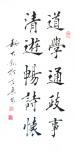 道學通政事
清遊暢詩懷